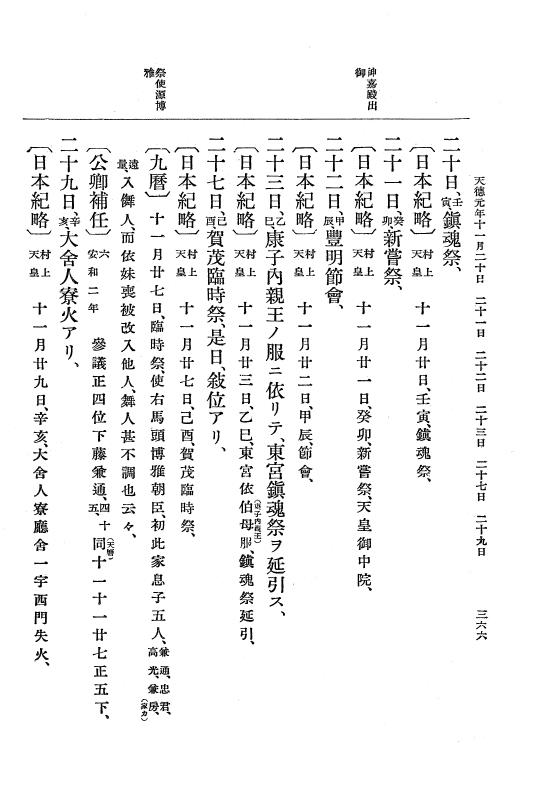 天德元年十一月二十日　二十一日　二十二日　二十三日　二十七日　二十九日
三六六
神嘉殿出
御
祭使源博
雅
二十日、壬寅鎭魂祭、
〔日本紀略〕村上天皇　十一月廿日、壬寅、鎭魂祭、
二十一日、癸卯新嘗祭、
〔日本紀略〕村上天皇　十一月廿一日、癸卯、新嘗祭、天皇御中院、
二十二日、甲辰豐明節會、
〔日本紀略〕村上天皇　十一月廿二日、甲辰、節會、
二十三日、乙巳康子內親王ノ服ニ依リテ、東宮鎭魂祭ヲ延引ス、
〔日本紀略〕村上天皇　十一月廿三日、乙巳、東宮依伯母(康子內親王)服、鎭魂祭延引、
二十七日、己酉賀茂臨時祭、是日、敍位アリ、
〔日本紀略〕村上天皇　十一月廿七日、己酉、賀茂臨時祭、
〔九曆〕十一月廿七日、臨時祭、使右馬頭博雅朝臣、初此家息子五人、兼通、忠君、高光、兼房、(家カ)
遠量、入舞人、而依妹喪被改入他人、舞人甚不調也云々、
〔公卿補任〕六　安和二年　參議正四位下藤兼通、四十五、同(天曆)十一十一廿七正五下、
二十九日、辛亥大舍人寮火アリ、
〔日本紀略〕村上天皇　十一月廿九日、辛亥、大舍人寮廳舍一宇西門失火、